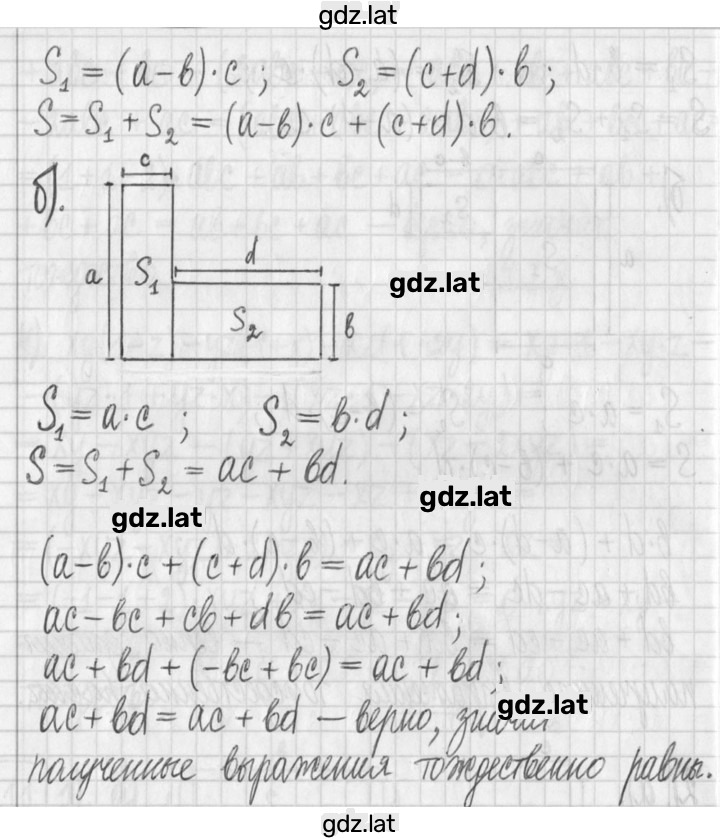 gdz.lat
S₁ = (a-в)·c ; S₂ = (c+d)·в ;
S = S₁ + S₂ = (a-в)·c + (c+d)·в.
б).
c
a
S₁
d
gdz.lat
S₂
в
S₁ = a·c ; S₂ = в·d ;
S = S₁ + S₂ = ac + вd.
gdz.lat
gdz.lat
(a-в)·c + (c+d)·в = ac + вd ;
ac - вc + cв + dв = ac + вd ;
ac + вd + (-вc + вc) = ac + вd ;
gdz.lat
ac + вd = ac + вd - верно,
полученные выражения тождественно равны.
gdz.lat